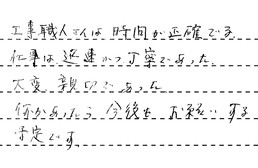 工事職人さんは時間が正確である。
仕事は迅速かつ丁寧であった。
大変、親切であった。
何かあったら今後もお願いする
予定です。